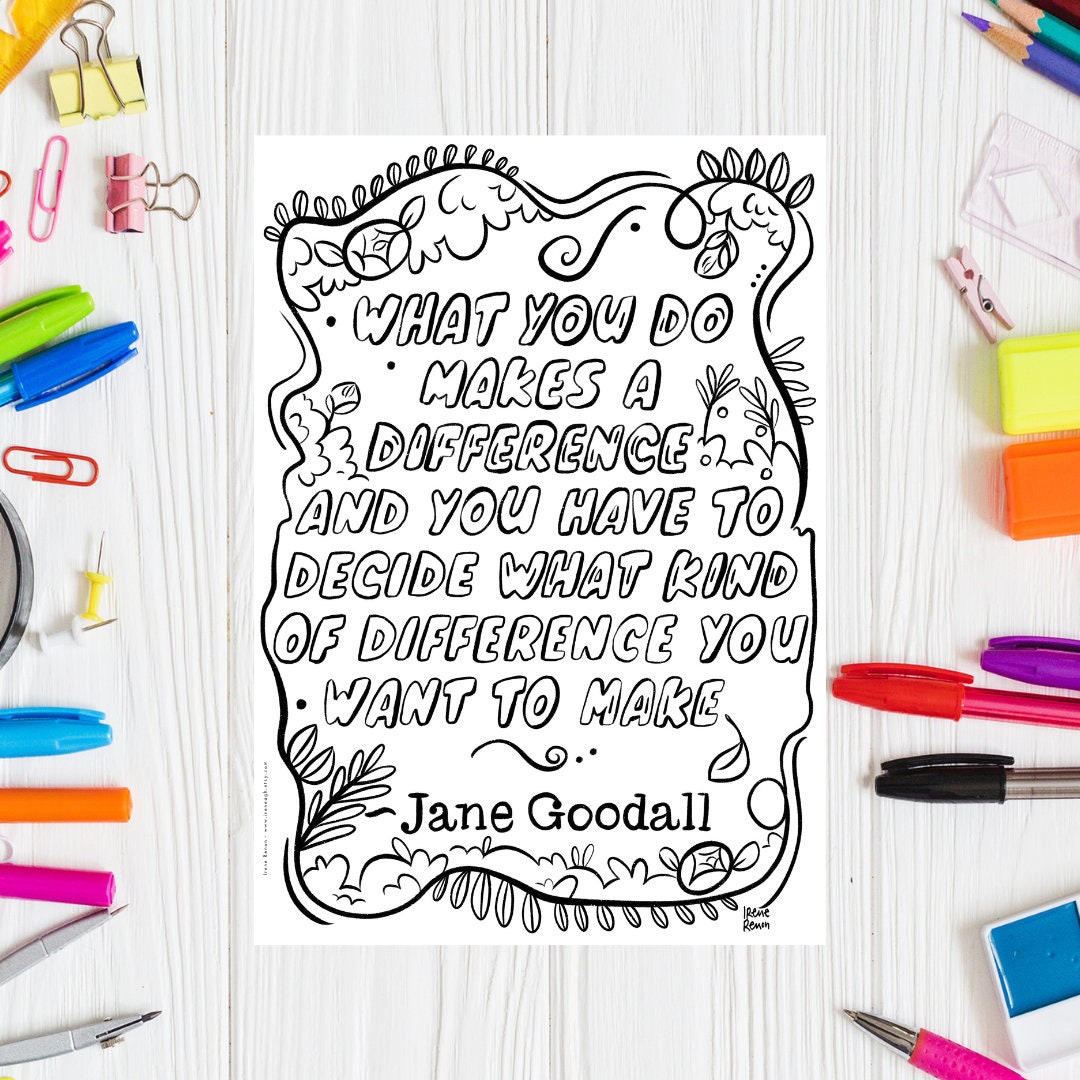 WHAT YOU DO
MAKES A
DIFFERENCE
AND YOU HAVE TO
DECIDE WHAT KIND
OF DIFFERENCE YOU
WANT TO MAKE
~Jane Goodall
IReNe
Renon